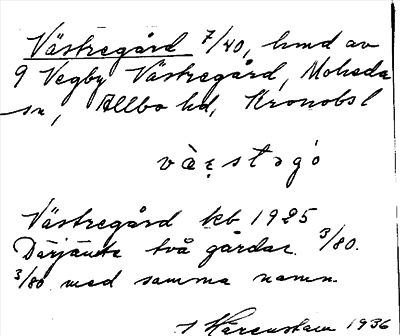 Västregård 7/40, hmd av
9 Vegby Västregård, Moheda
sn, Allbo hd, Kronobs l
västəgó
Västregård kb 1925
Därjämte två gårdar 3/80.
3/80 med samma namn.
Härenstam 1936